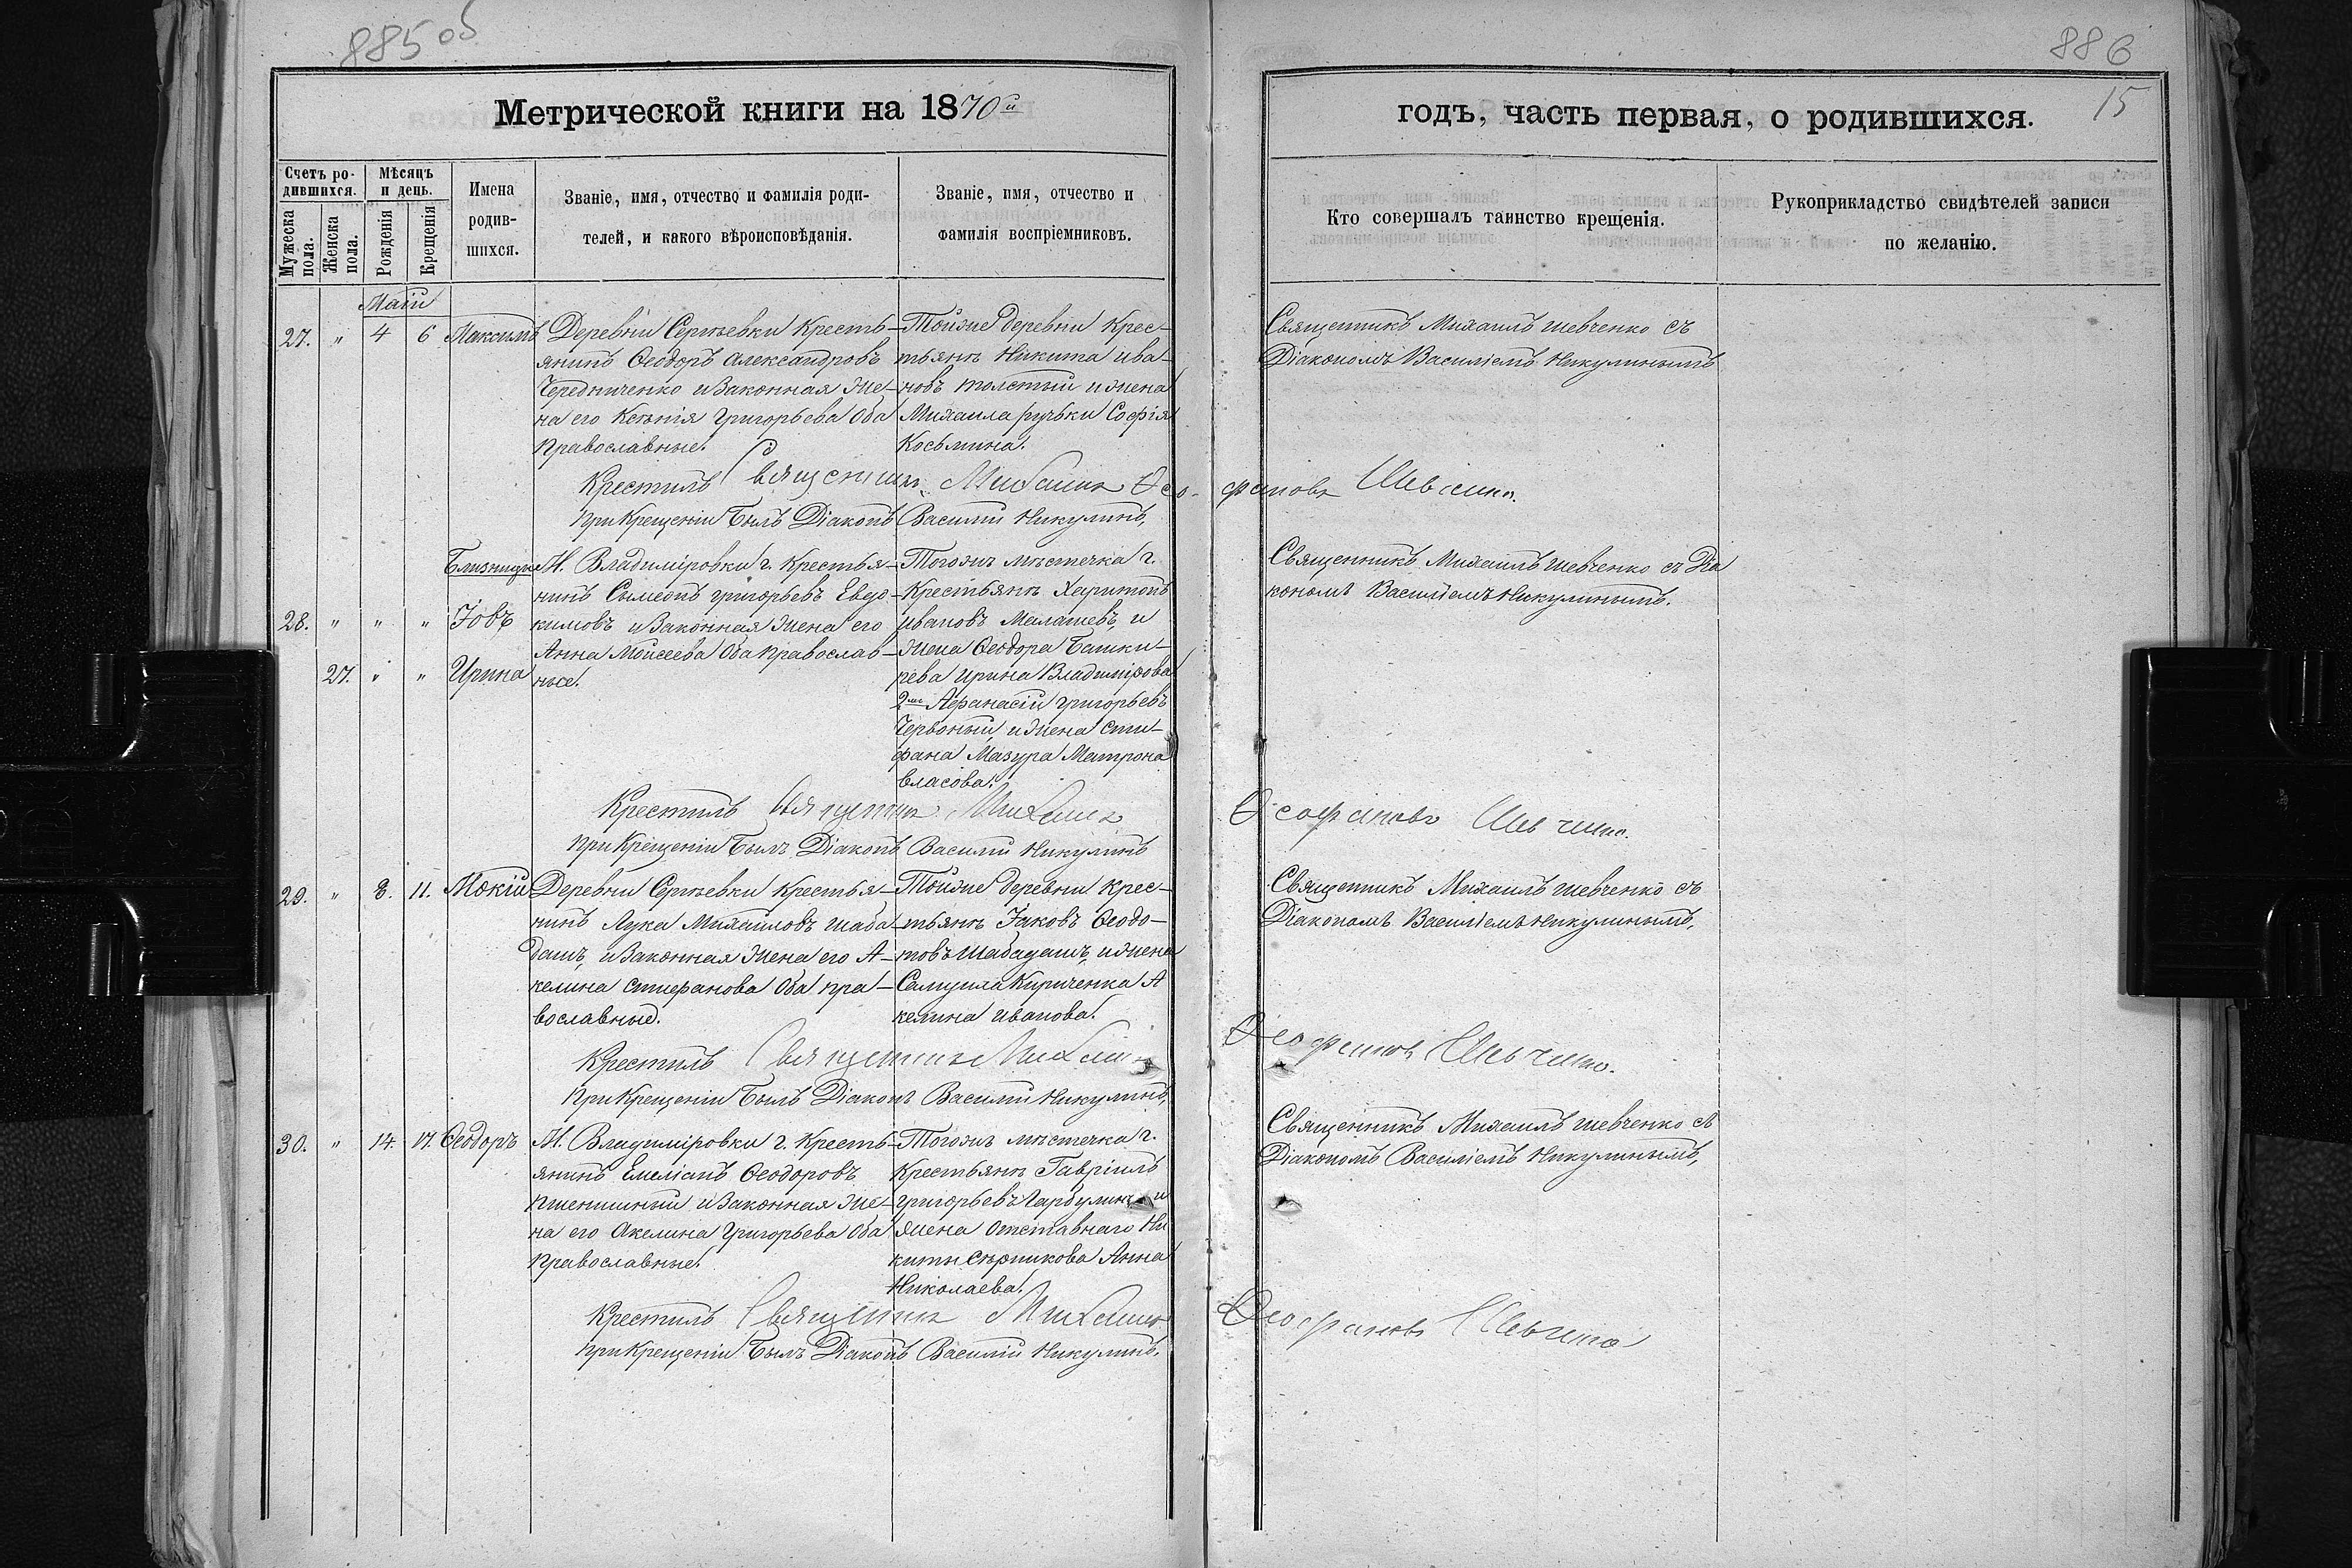 885 об
886
15
Метрической книги на 1870й
годъ, часть первая, о родившихся.
Счетъ родившихся.
Мужеска пола.
Женска пола.
Мѣсяцъ и день.
Рожденія
Крещенія
Имена родив-
шихся.
Званіе, имя, отчество и фамилія роди-
телей, и какого вѣроисповѣданія.
Званіе, имя, отчество и
фамилія воспріемниковъ.
Кто совершалъ таинство крещенія.
Рукоприкладство свидѣтелей записи
по желанію.
Маій
27. " 4 6 Максимъ
Деревни Сергѣевки Кресть-
янинъ Ѳеодоръ Александровъ
Чередниченко и Законная Же-
на его Ксѣнія Григорьева Оба
Православные.
Тойже деревни Крес-
тьянъ Никита Ива-
новъ Толстый и жена
Михаила Софія
Косьмина.
Священникъ Михаилъ Шевченко съ
Діакономъ Василіемъ Никулинымъ
Крестилъ Священникъ Михаилъ Ѳео-
фановъ Шевченко.
При Крещеніи Былъ Діаконъ Василій Никулинъ,
Близнецы
28. " " " Іовъ
27. " " Ирина
М. Владиміровки г. Крестья-
нинъ Сѵмеонъ Григорьевъ Евдо-
кимовъ и Законная Жена его
Анна Моисеева Оба Православ-
ные.
Тогожъ мѣстечка г.
Крестьянъ Харитонъ
Ивановъ Малашевъ, и
жена Ѳеодора Башки-
рева Ирина Владимірова
2хъ Афанасій Григорьевъ
Червоный, и Жена Сти-
фана Мазура Матрона
Власова.
Священникъ Михаилъ Шевченко съ Діа
кономъ Василіемъ Никулинымъ.
Крестилъ Священникъ Михаилъ
Ѳеофановъ Шевченко.
При Крещеніи Былъ Діаконъ Василій Никулинъ
29. " 8. 11. Мокій
Деревни Сергѣевки Крестья-
нинъ Лука Михаиловъ Шаба-
дашъ, и Законная Жена его А-
келина Стефанова Оба пра-
вославные.
Тойже деревни Крес-
тьянъ Іаковъ Ѳеодо-
товъ Шабадашъ, и жена
Самуила Кириченка А
келина Иванова.
Священникъ Михаилъ Шевченко съ
Діакономъ Василіемъ Никулинымъ,
Крестилъ Священникъ Михаилъ
Ѳеофановъ Шевченко.
При Крещеніи Былъ Діаконъ Василій Никулинъ,
30. " 14. 17. Ѳеодоръ
М. Владиміровки г. Кресть-
янинъ Емеліанъ Ѳеодоровъ
Пшеничный и Законная Же-
на его Акелина Григорьева Оба
Православные.
Тогожъ мѣстечка г.
Крестьянъ Гавріилъ
Григорьевъ и
жена Отставнаго Ни
киты Сѣрикова Анна
Николаева.
Священникъ Михаилъ Шевченко съ
Діакономъ Василіемъ Никулинымъ,
Крестилъ Священникъ Михаилъ
Ѳеофановъ Шевченко
При Крещеніи Былъ Діаконъ Василій Никулинъ.